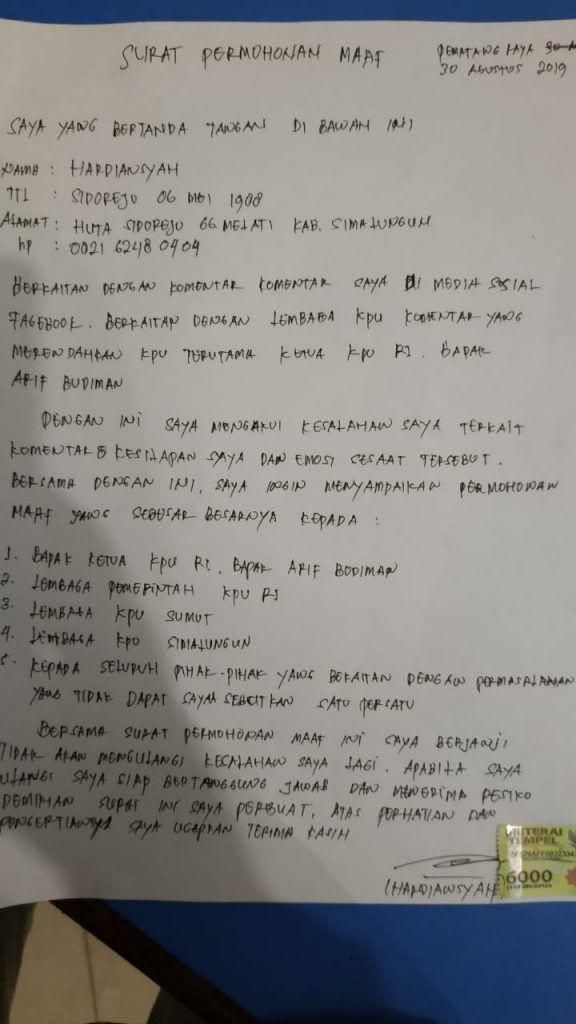 SURAT PERMOHONAN MAAF
PEMATANG RAYA
30 AGUSTUS 2019
SAYA YANG BERTANDA TANGAN DI BAWAH INI
NAMA : HARDIANSYAH
TTL : SIDOREJO 06 MEI 1988
ALAMAT : HUTA SIDOREJO GG MELATI KAB. SIMALUNGUN
hp : 0821 6248 0404
BERKAITAN DENGAN KOMENTAR KOMENTAR SAYA DI MEDIA SOSIAL
FACEBOOK. BERKAITAN DENGAN LEMBAGA KPU KOMENTAR YANG
MERENDAHKAN KPU TERUTAMA KETUA KPU RI. BAPAK
ARIF BUDIMAN
DENGAN INI SAYA MENGAKUI KESALAHAN SAYA TERKAIT
KOMENTAR & KESILAPAN SAYA DAN EMOSI SESAAT TERSEBUT.
BERSAMA DENGAN INI, SAYA INGIN MENYAMPAIKAN PERMOHONAN
MAAF YANG SEBESAR BESARNYA KEPADA :
1. BAPAK KETUA KPU RI. BAPAK ARIF BUDIMAN
2. LEMBAGA PEMERINTAH KPU RI
3. LEMBAGA KPU SUMUT
4. LEMBAGA KPU SIMALUNGUN
5. KEPADA SELURUH PIHAK-PIHAK YANG BEKAITAN DENGAN PERMASALAHAN
YANG TIDAK DAPAT SAYA SEBUTKAN SATU PERSATU
BERSAMA SURAT PERMOHONAN MAAF INI SAYA BERJANJI
TIDAK AKAN MENGULANGI KESALAHAN SAYA LAGI. APABILA SAYA
ULANGI SAYA SIAP BERTANGGUNG JAWAB DAN MENERIMA RESIKO
DEMIKIAN SURAT INI SAYA PERBUAT, ATAS PERHATIAN DAN
PENGERTIANNYA SAYA UCAPKAN TERIMA KASIH
(HARDIANSYAH)
METERAI
TEMPEL
6000
ENAM RIBU RUPIAH